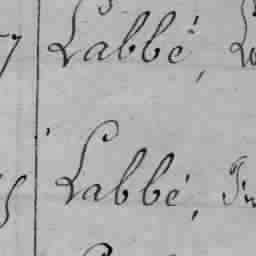 Labbé,
Labbé,